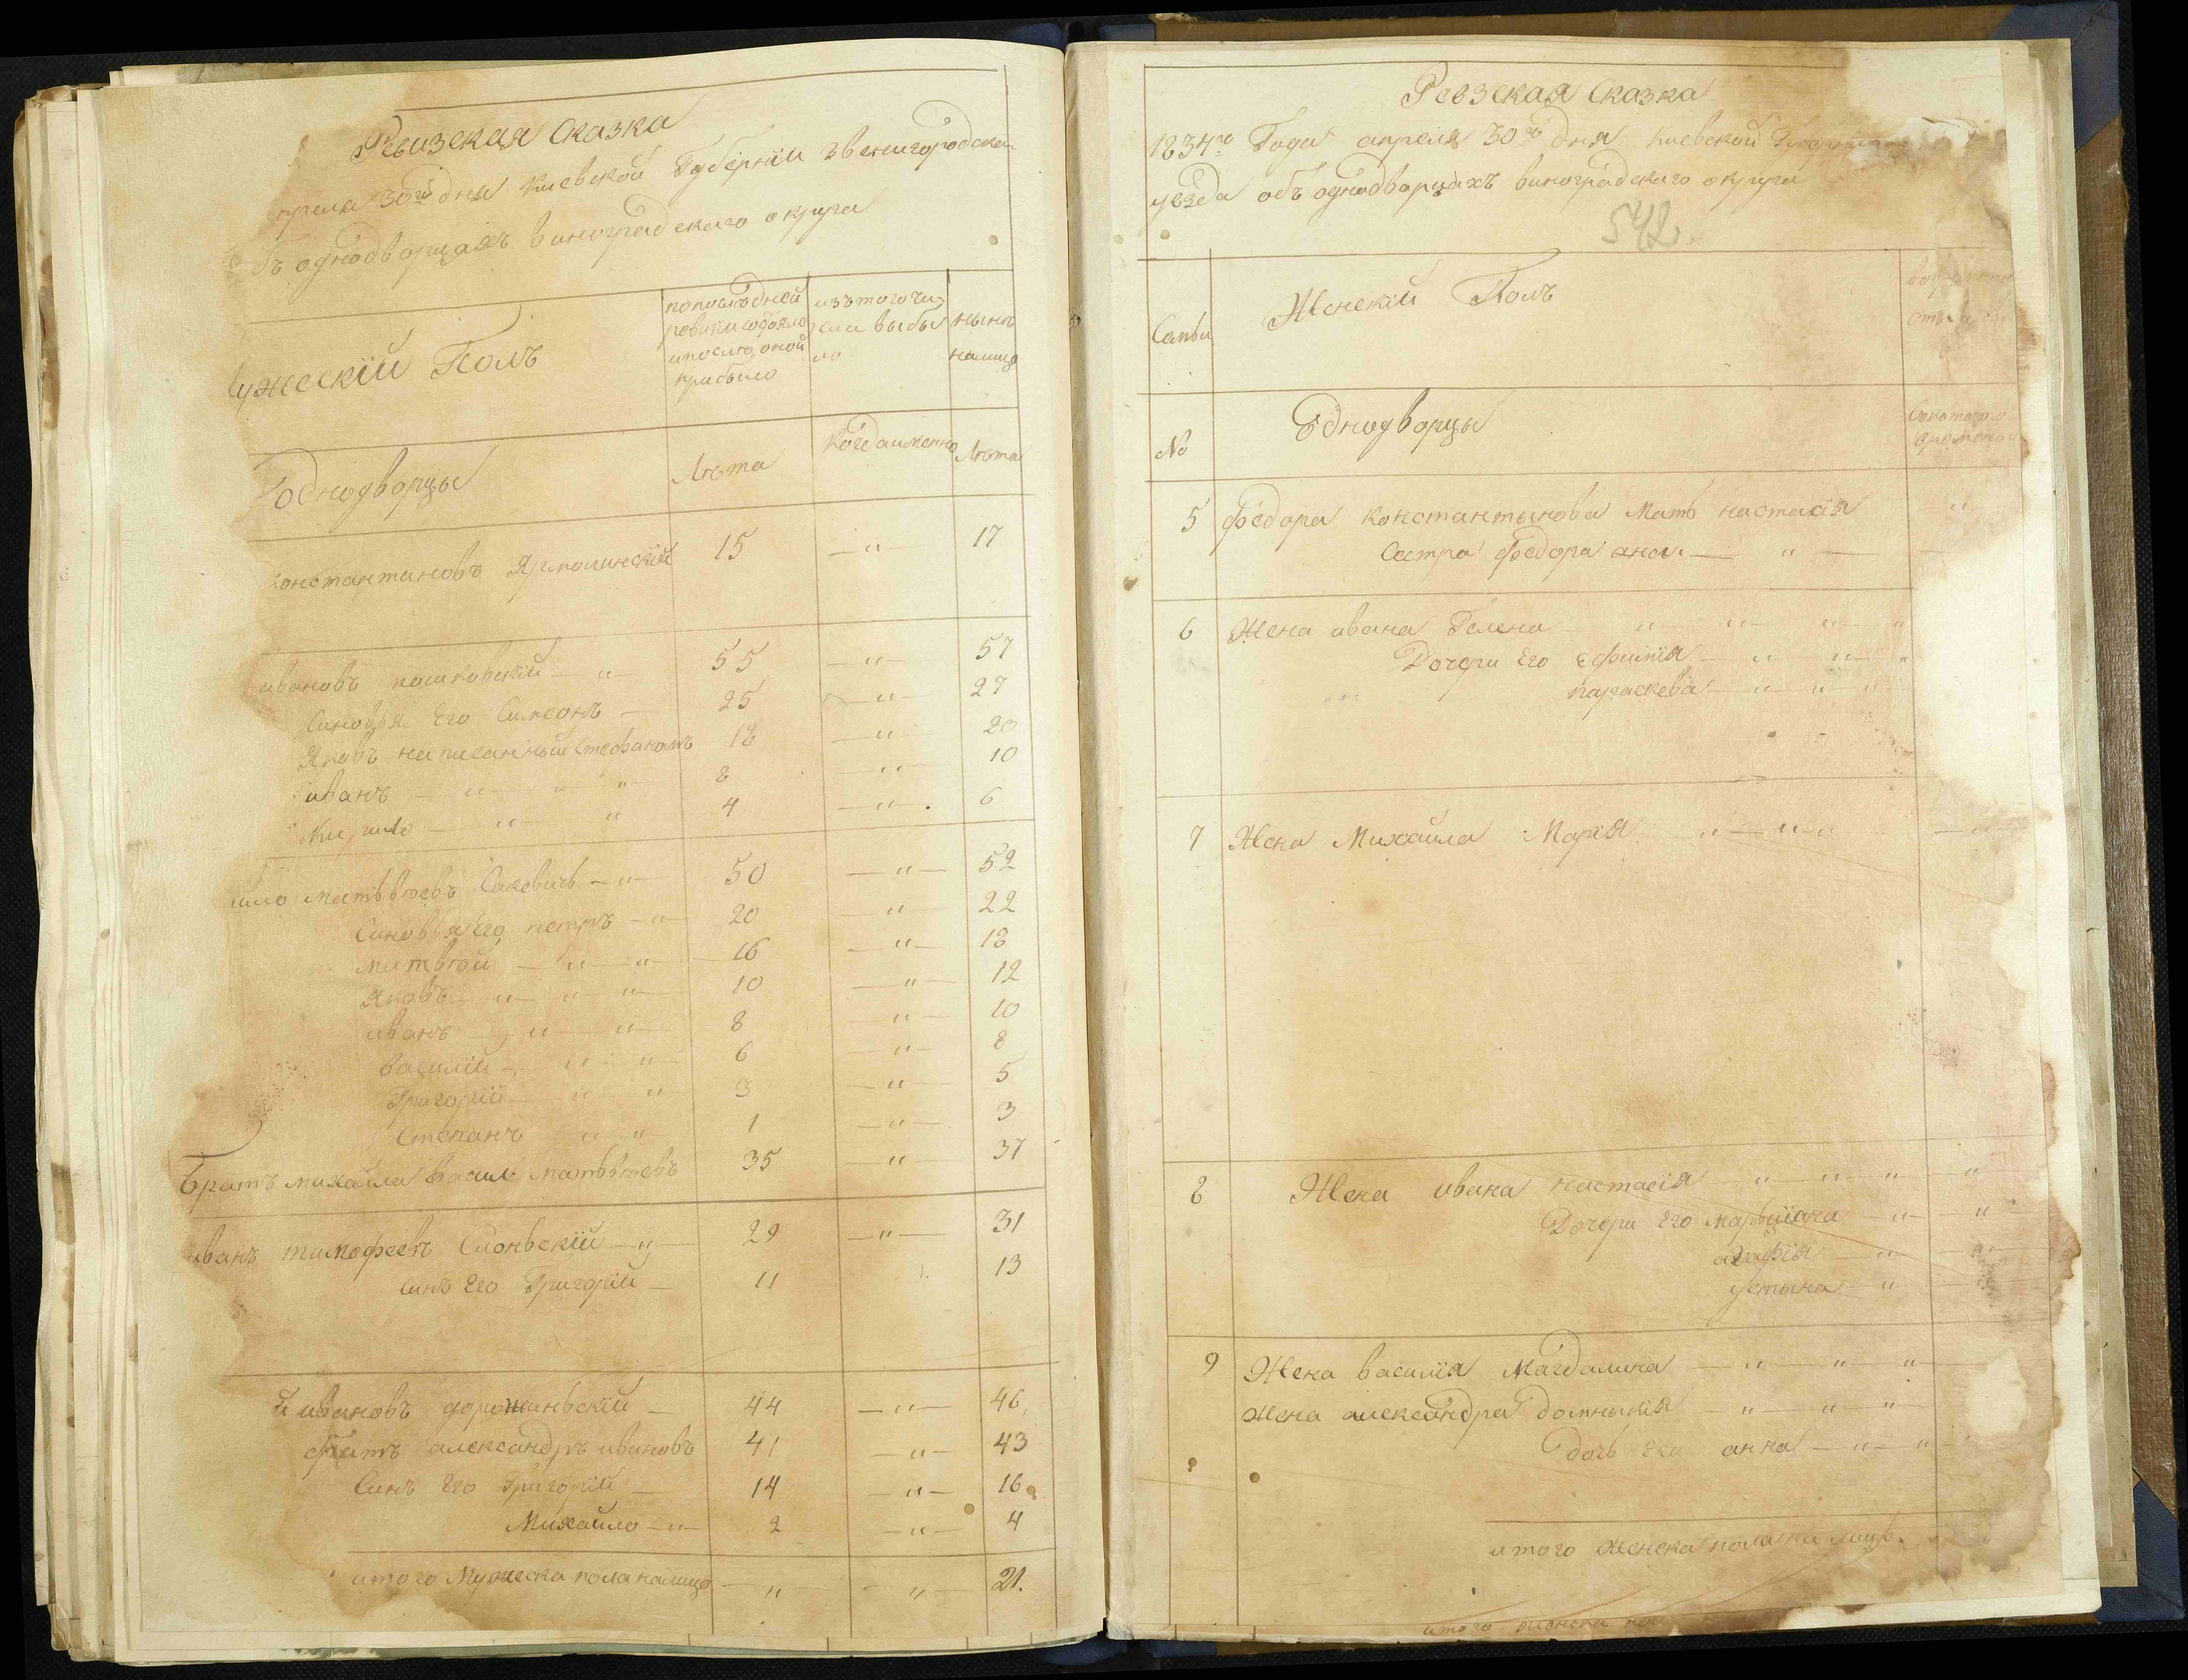 Ревизская сказка
преля 30го дня Киевской Губернїи звенигородска
бъ однодворцахъ виноградскаго округа
ужескїй Полъ
попослѣдней ревизїи состояло ипослѣ оной прибыло
изътого числа выбыло
нынѣ налицо
однодворцы
Лѣта
Когда именно
Лѣта
Константиновъ Ярмолинскїй 15 — " — 17
ивановъ пашковскїй — " — 55 — " — 57
Синовья Его Симеонъ — 25 — " — 27
Яковъ написанный Стефаномъ 18 — " — 20
иванъ — " — " — " 8 — " — 10
Кирило — " — " 4 — " — 6
ило матвѣевъ Саковичъ — " — 50 — " — 52
Синовья Его петръ — " — 20 — " — 22
матвѣй — " — " — 16 — " — 18
Яковъ — " — " — " — 10 — " — 12
иванъ — " — " — 8 — " — 10
василїй — " — " — 6 — " — 8
Григорїй — " — " 3 — " — 5
Степанъ — " — " 1 — " — 3
Братъ михайла василь матвѣевъ 35 — " — 37
иванъ тимофеевъ Слонвскїй — " — 29 — " — 31
Синъ Его Григорїй — 11 13
й ивановъ дорожинвскїй — 44 — " — 46
братъ александръ ивановъ 41 — " — 43
Синъ Его Григорїй — 14 — " — 16
Михайло — " — 2 — " — 4
итого Мужеска пола налицо — " — " — 21.
Ревзская сказка
1834го Года апреля 30го дня Киевской Губернїи
уезда объ однодворцахъ виноградскаго округа
542
Семьи
Женскїй Полъ
№
Однодворцы
5 Федора константынова Мать настасїя "
Сестра Федора анна — " —
6 Жена ивана Гелена — " — " — " — "
Дочери Его Ефимїя — " — " — "
параскева — " — " — "
7 Жена Михайла Марїя — " — " — "
8 Жена ивана настасїя — " — " — " — "
Дочери Его марцїана — " — "
агафїя — " — "
устына — "
9 Жена василїя Магдалина — " — " — "
Жена александра домникїя " — " — "
дочь Его анна — " — "
итого женска пола на лицо
итого женска